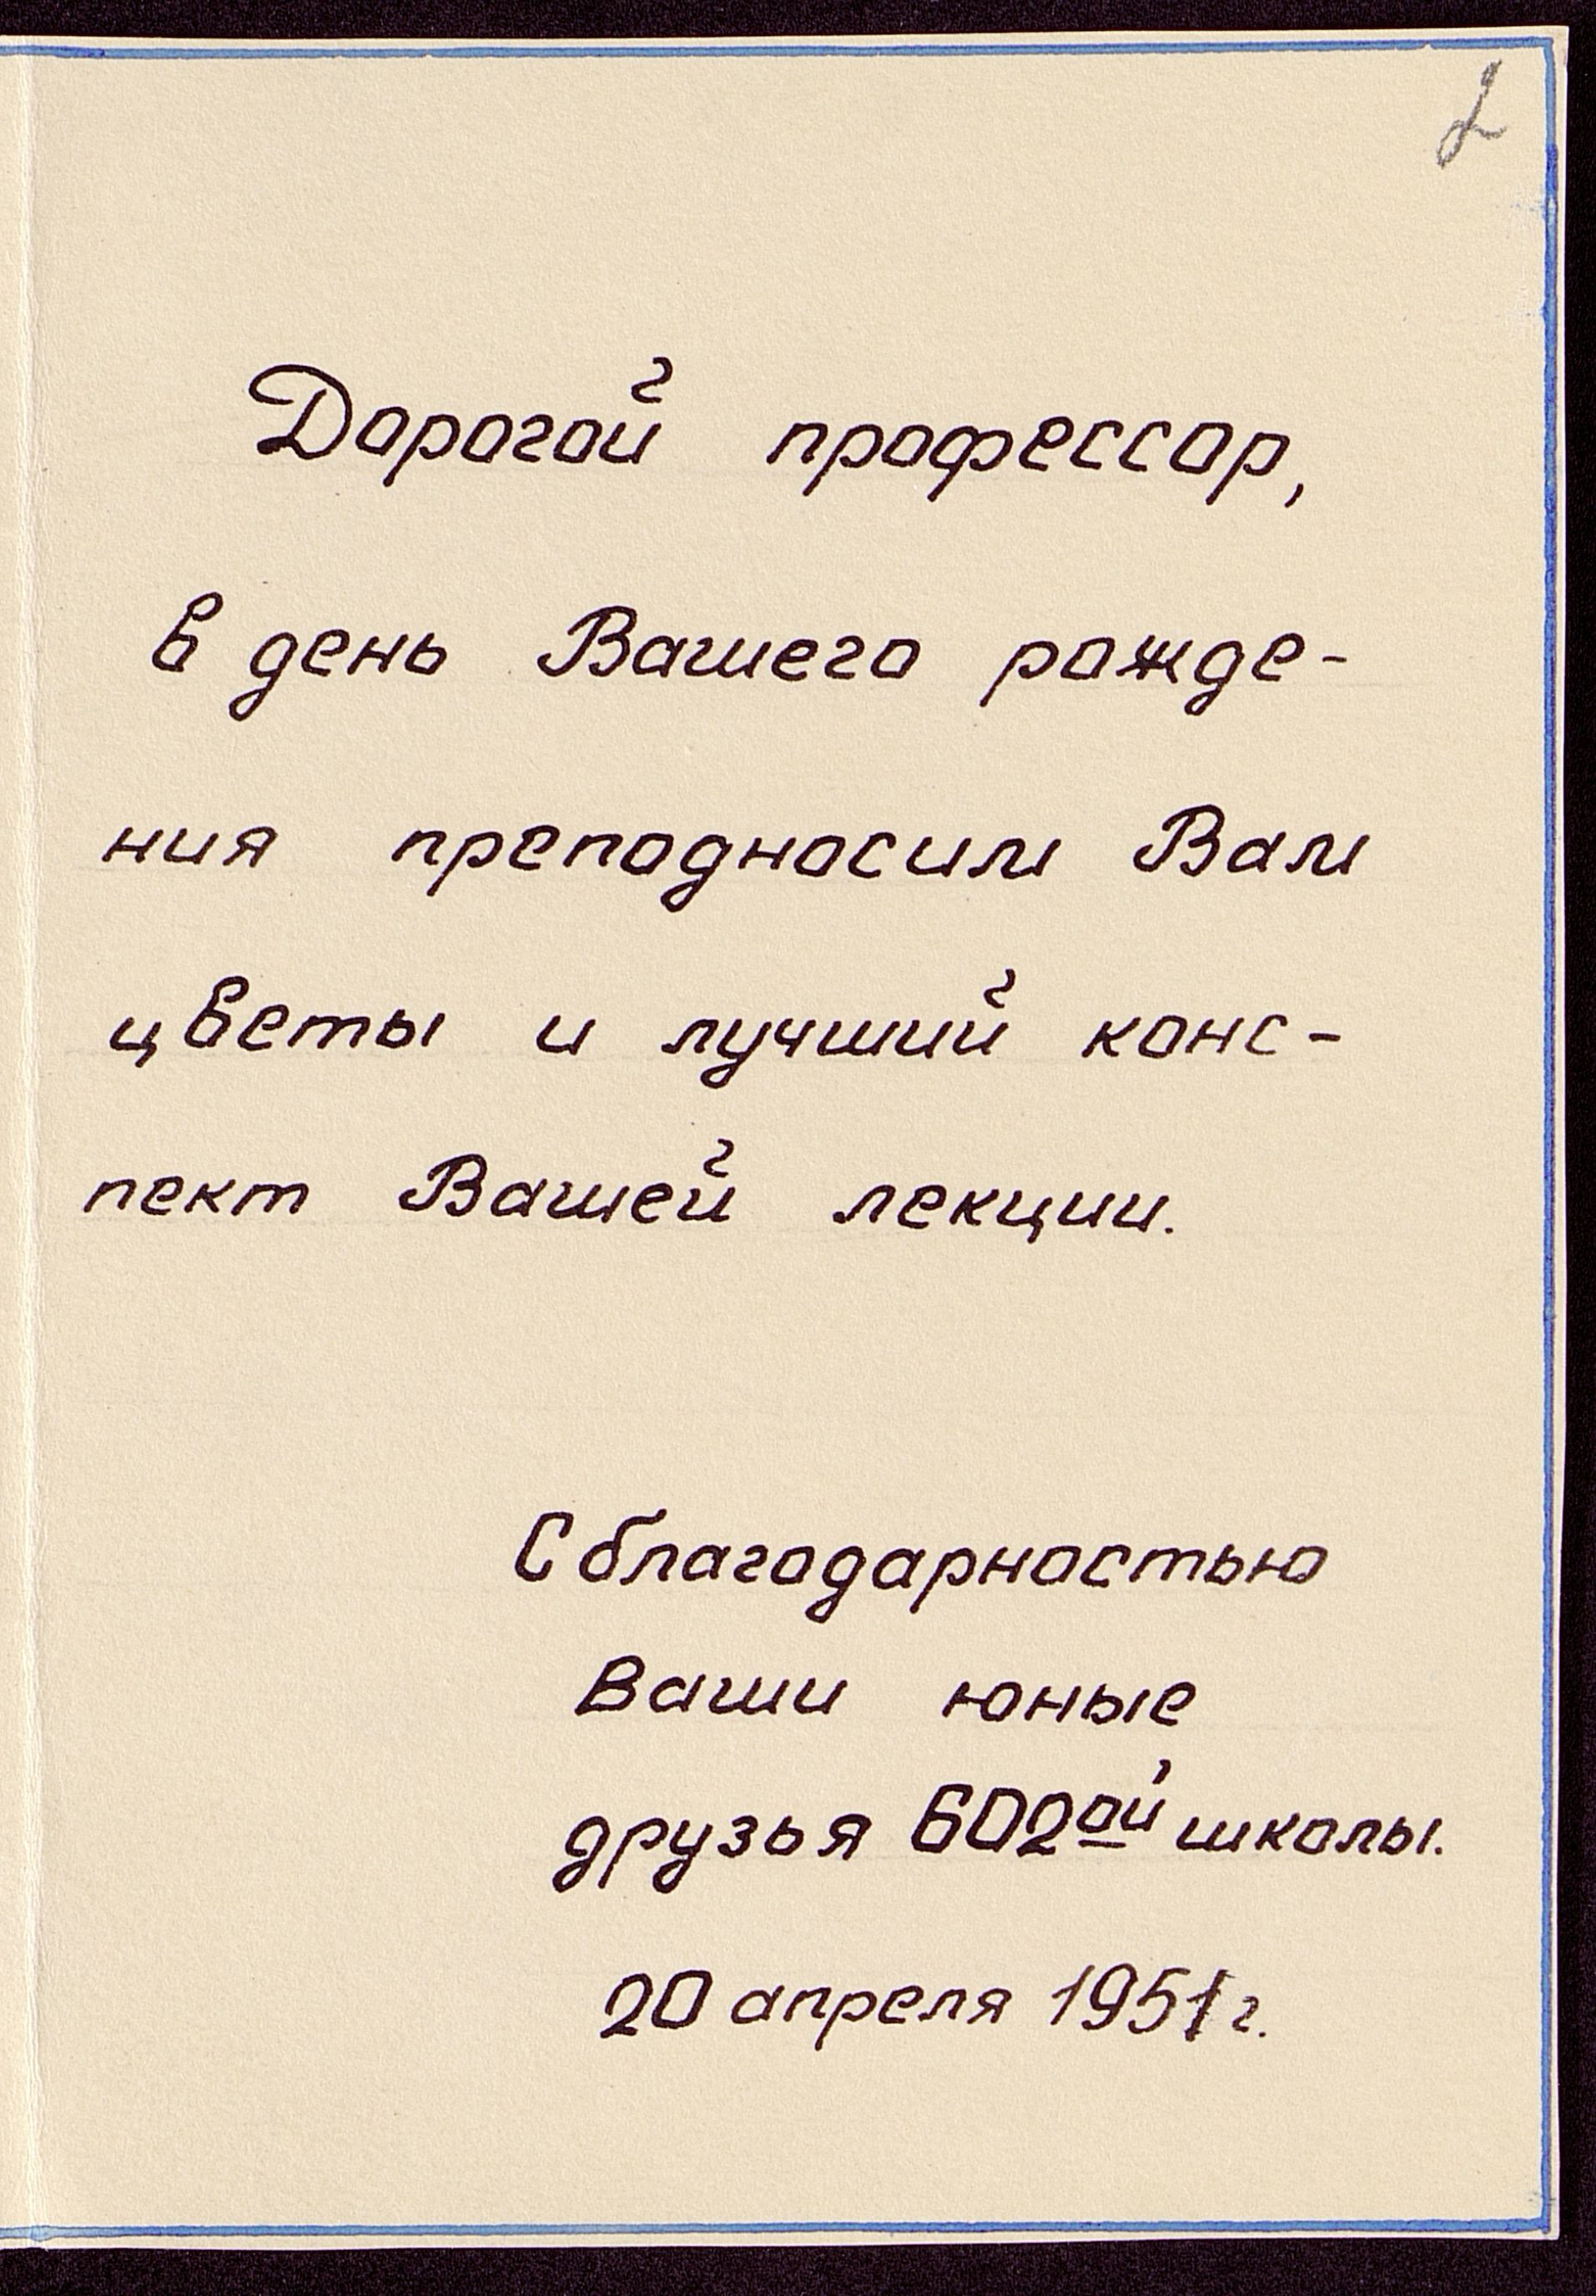 2
Дорогой профессор,
в день Вашего рожде-
ния преподносим Вам
цветы и лучший конс-
пект Вашей лекции.
С благодарностью
Ваши юные
друзья 602ой школы.
20 апреля 1951 г.